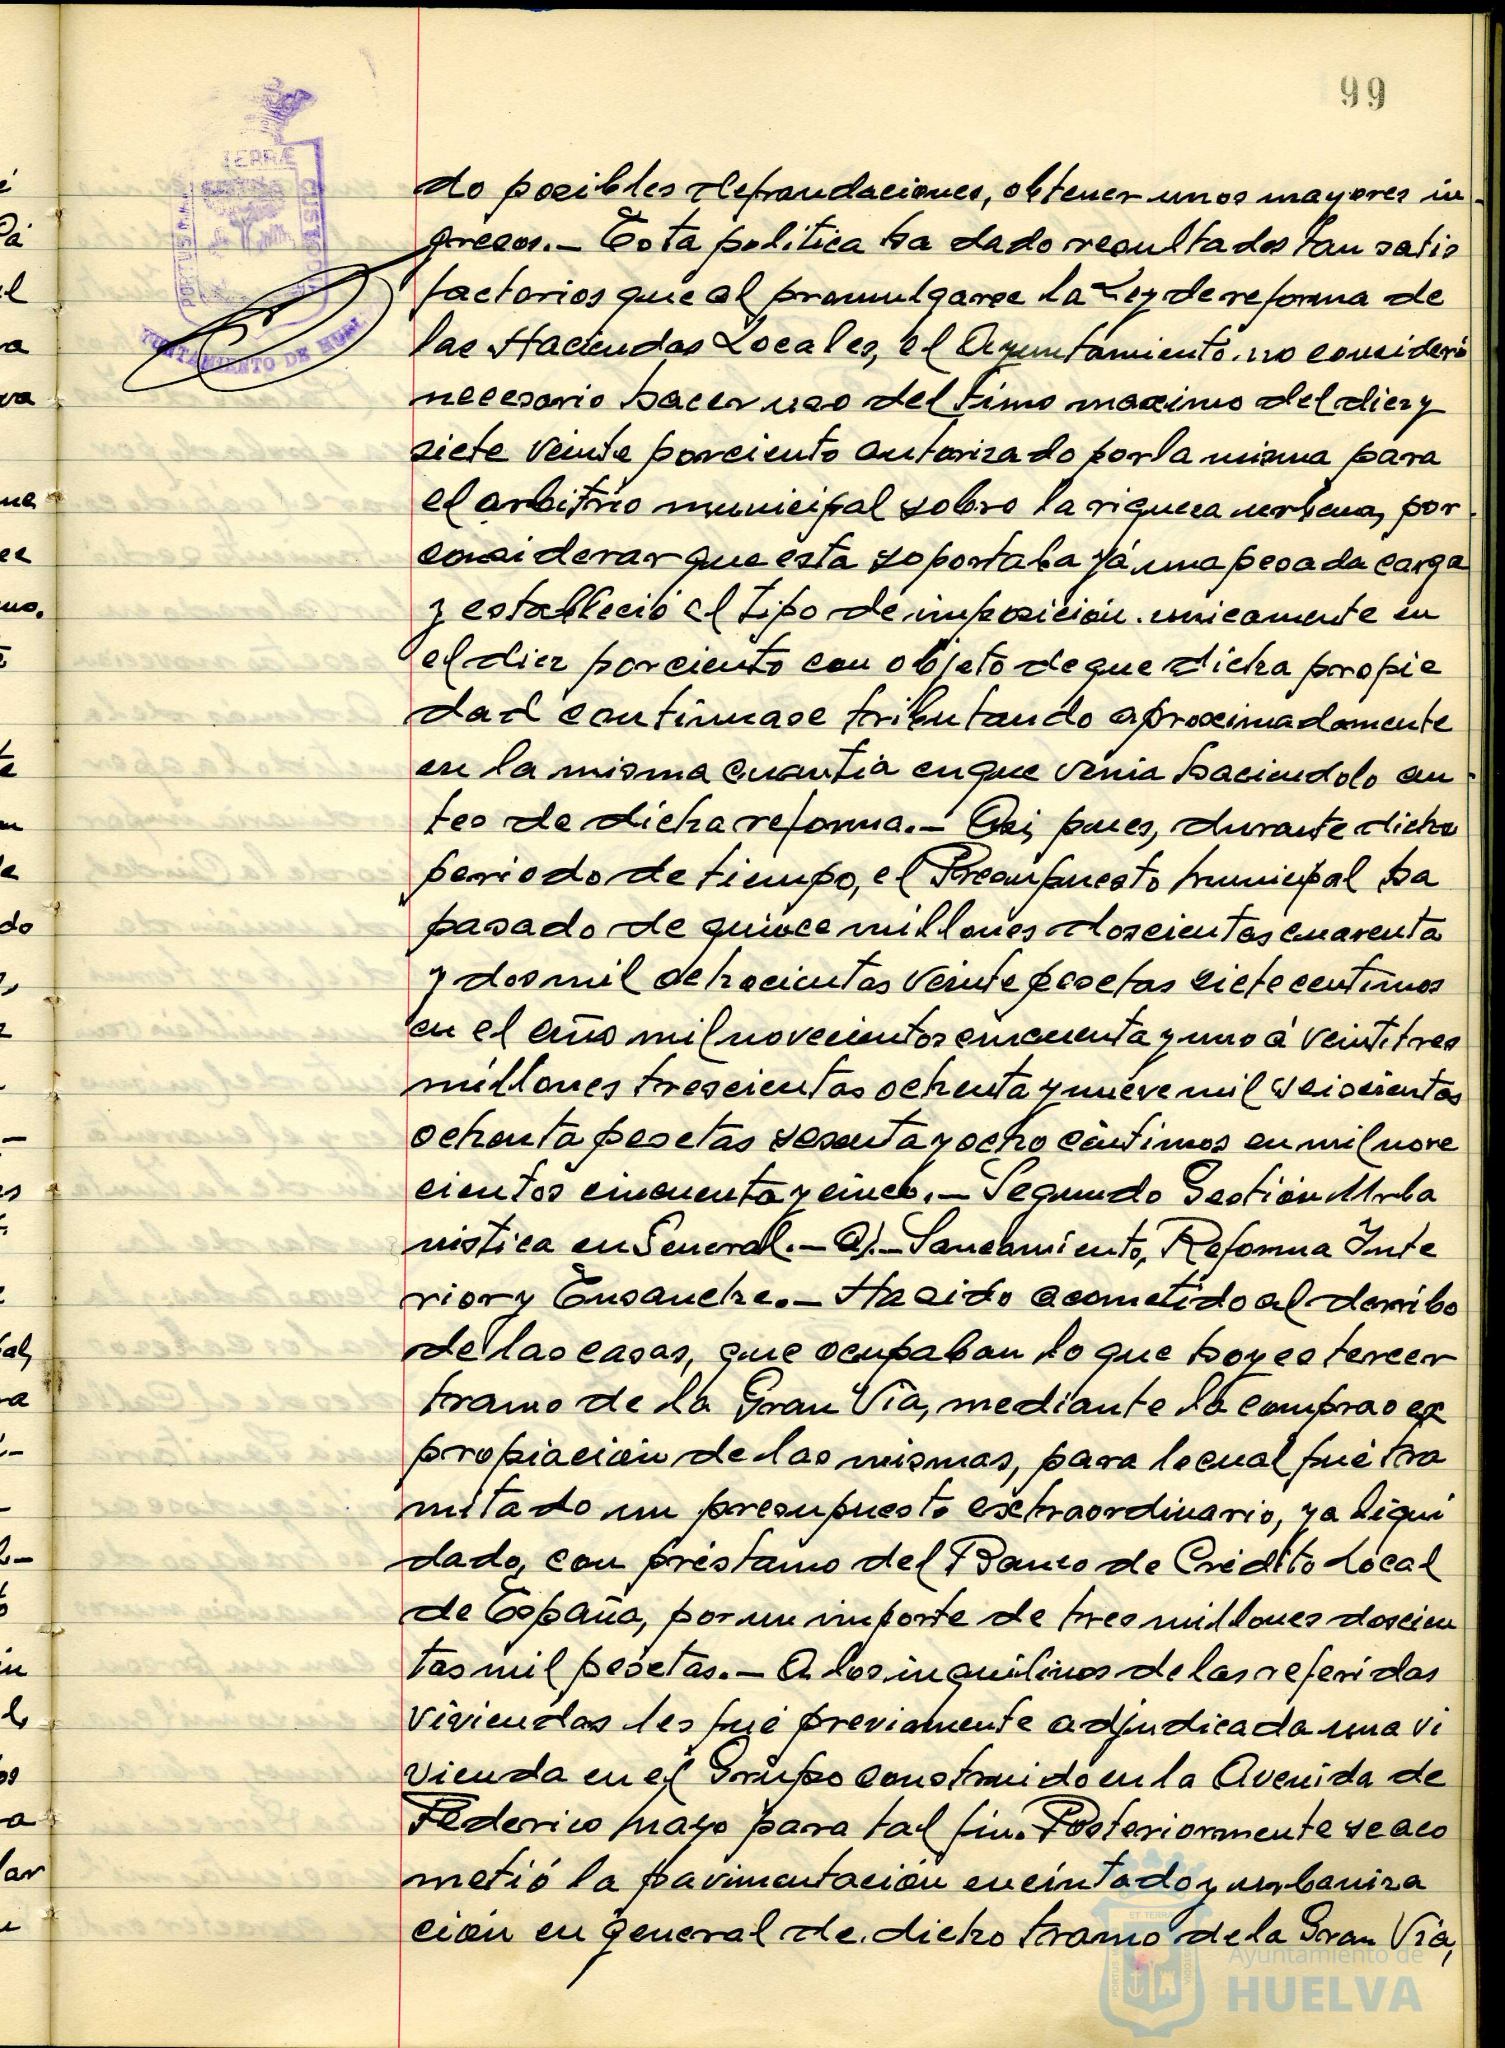 99
TERRÆ
CUSTODIA
PORTUS M
AYUNTAMIENTO DE HUEL
do posibles defraudaciones, obtener unos mayores in
gresos.- Esta politica ha dado resultados tan satis
factorios que al promulgarse la Ley de reforma de
las Haciendas Locales, el Ayuntamiento no consideró
necesario hacer uso del timo maximo del diez y
siete veinte por ciento autorizado por la misma para
el arbitrio municipal sobre la riqueza urbana, por
considerar que esta soportaba yá una pesada carga
y estableció el tipo de imposición unicamente en
el diez por ciento con objeto de que dicha propie
dad continuase tributando aproximadamente
en la misma cuantia en que venia haciendolo an
tes de dicha reforma.- Asi, pues, durante dicho
periodo de tiempo, el Presupuesto municipal ha
pasado de quince millones doscientas cuarenta
y dos mil ochocientas veinte pesetas siete centimos
en el año mil novecientos cincuenta y uno á veintitres
millones trescientas ochenta y nueve mil seiscientas
ochenta pesetas sesenta y ocho céntimos en mil nove
cientos cincuenta y cinco.- Segundo Gestión Urba
nistica en General.- A).- Saneamiento, Reforma Inte
rior y Ensanche.- Ha sido acometido al derribo
de las casas, que ocupaban lo que hoy es tercer
tramo de la Gran Vía, mediante la compra o ex
propiación de las mismas, para lo cual fué tra
mitado un presupuesto extraordinario, ya liqui
dado, con préstamo del Banco de Crédito Local
de España, por un importe de tres millones doscien
tas mil pesetas.- A los inquilinos de las referidas
viviendas les fué previamente adjudicada una vi
vienda en el Grupo construido en la Avenida de
Federico Mayo para tal fin. Posteriormente se aco
metió la pavimentación encintado y urbaniza
ción en general de dicho tramo de la Gran Vía,
Ayuntamiento de
HUELVA